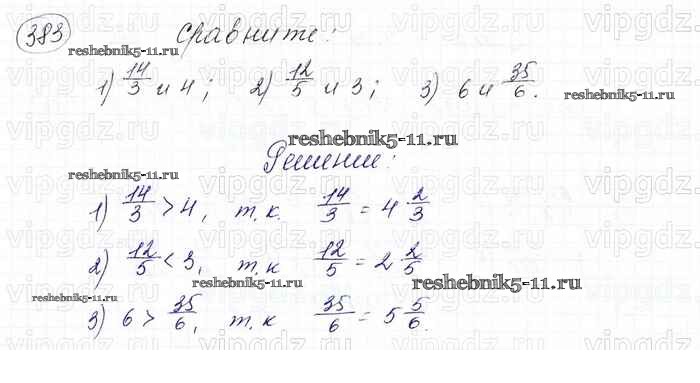 383 Сравните:
reshebnik5-11.ru
1) 14/3 и 4; 2) 12/5 и 3; 3) 6 и 35/6.
reshebnik5-11.ru
reshebnik5-11.ru
Решение:
reshebnik5-11.ru
1) 14/3 > 4, т.к. 14/3 = 4 2/3
2) 12/5 < 3, т.к 12/5 = 2 2/5
reshebnik5-11.ru
reshebnik5-11.ru
reshebnik5-11.ru
3) 6 > 35/6, т.к 35/6 = 5 5/6.
vipgdz.ru vipgdz.ru vipgdz.ru vipgdz.ru